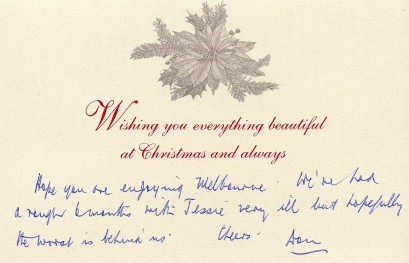 Wishing you everything beautiful
at Christmas and always
Hope you are enjoying Melbourne. We've had
a rough 6 months with Jessie very ill but hopefully
the worst is behind us. Cheers. Don